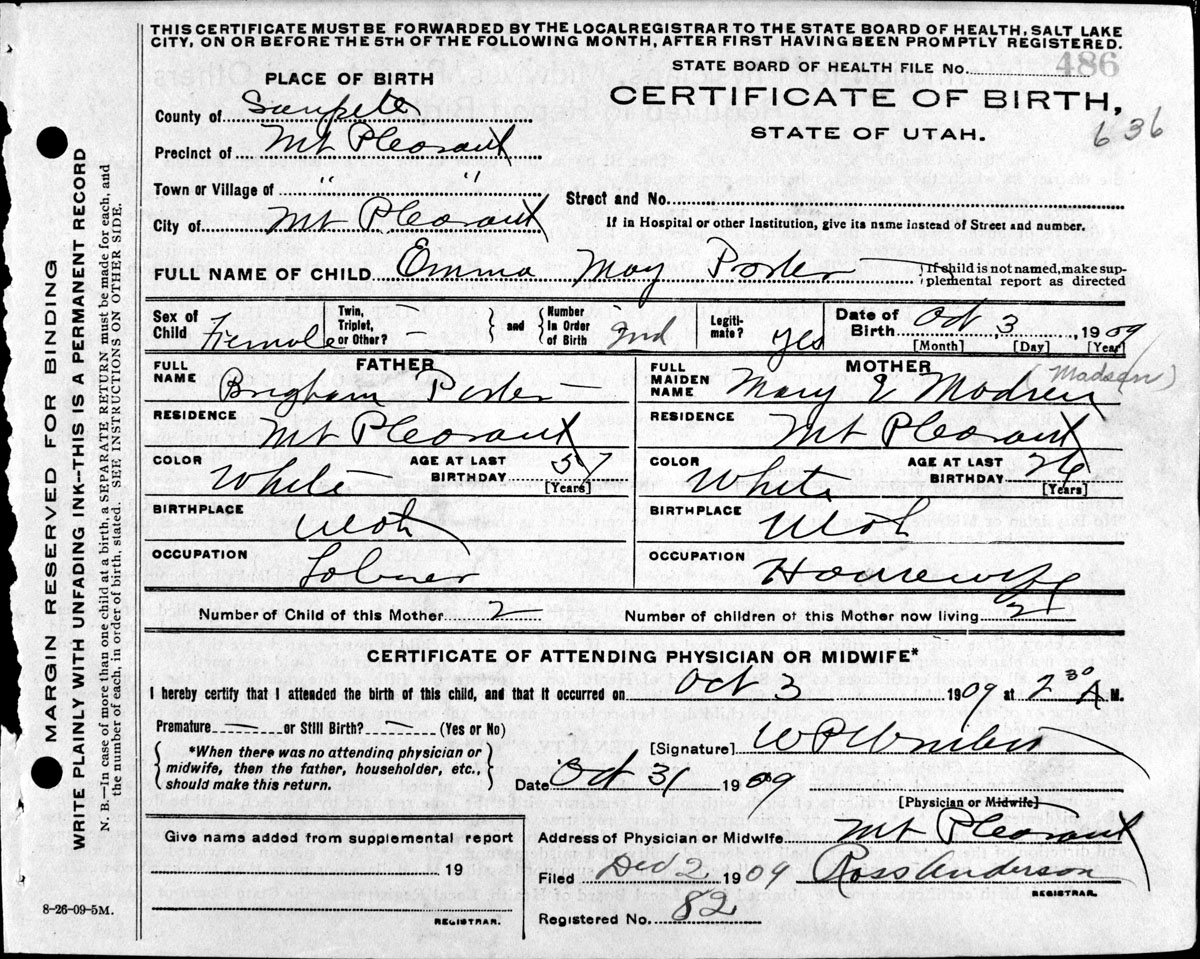 THIS CERTIFICATE MUST BE FORWARDED BY THE LOCAL REGISTRAR TO THE STATE BOARD OF HEALTH, SALT LAKE
CITY, ON OR BEFORE THE 5TH OF THE FOLLOWING MONTH, AFTER FIRST HAVING BEEN PROMPTLY REGISTERED.
STATE BOARD OF HEALTH FILE No. 486
PLACE OF BIRTH
CERTIFICATE OF BIRTH,
STATE OF UTAH.
636
County of Sanpete
Precinct of Mt Pleasant
Town or Village of " "
Street and No.
City of Mt Pleasant
If in Hospital or other Institution, give its name instead of Street and number.
FULL NAME OF CHILD Emma May Porter
{If child is not named, make sup-
plemental report as directed
Sex of Child Female
Twin, Triplet, or Other? —
and
Number In Order of Birth 2nd
Legiti-mate? yes
Date of Birth Oct 3, 1909
[Month] [Day] [Year]
FATHER
FULL NAME Brigham Porter
RESIDENCE Mt Pleasant
COLOR White
AGE AT LAST BIRTHDAY 37 [Years]
BIRTHPLACE Utah
OCCUPATION Laborer
MOTHER
FULL MAIDEN NAME Mary E Madsen (Madsen)
RESIDENCE Mt Pleasant
COLOR White
AGE AT LAST BIRTHDAY 26 [Years]
BIRTHPLACE Utah
OCCUPATION Housewife
Number of Child of this Mother 2
Number of children of this Mother now living 2
CERTIFICATE OF ATTENDING PHYSICIAN OR MIDWIFE*
I hereby certify that I attended the birth of this child, and that it occurred on Oct 3 1909 at 2 30 A M.
Premature — or Still Birth? — (Yes or No)
{*When there was no attending physician or
midwife, then the father, householder, etc.,
should make this return.}
[Signature] W P
Date Oct 31 1909
[Physician or Midwife]
Give name added from supplemental report
19
REGISTRAR.
Address of Physician or Midwife Mt Pleasant
Filed Dec 2 1909 Ross Anderson
REGISTRAR.
Registered No. 82
8-26-09-5M.
MARGIN RESERVED FOR BINDING
WRITE PLAINLY WITH UNFADING INK—THIS IS A PERMANENT RECORD
N. B.—In case of more than one child at a birth, a SEPARATE RETURN must be made for each, and
the number of each, in order of birth, stated. SEE INSTRUCTIONS ON OTHER SIDE.